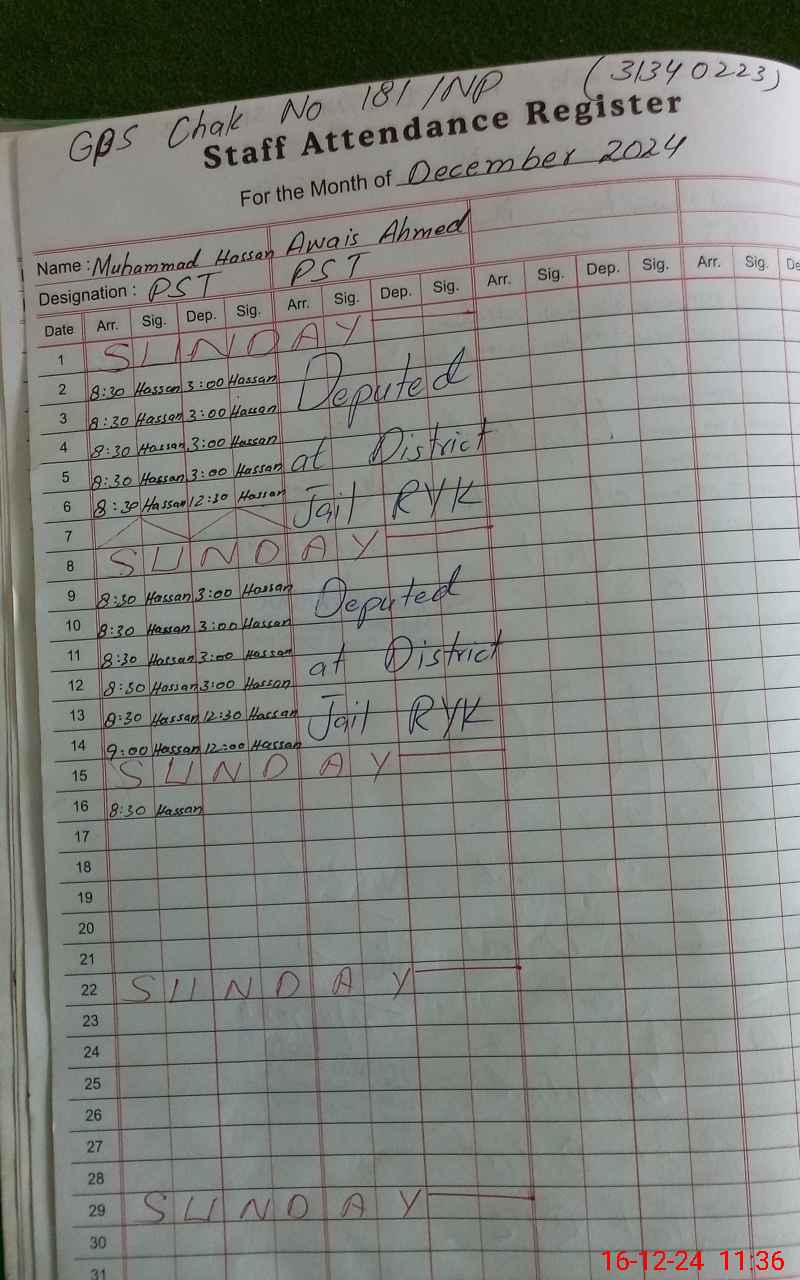 GPS Chak No 181/NP (31340223)
Staff Attendance Register
For the Month of December 2024
Name : Muhammad Hassan Awais Ahmed
Designation : PST PST
Date Arr. Sig. Dep. Sig. Arr. Sig. Dep. Sig. Arr. Sig. Dep. Sig. Arr. Sig. De
1 SUNDAY
2 8:30 Hassan 3:00 Hassan Deputed
3 8:30 Hassan 3:00 Hassan
4 8:30 Hassan 3:00 Hassan at District
5 8:30 Hassan 3:00 Hassan
6 8:30 Hassan 12:30 Hassan Jail RYK
7
8 SUNDAY
9 8:30 Hassan 3:00 Hassan Deputed
10 8:30 Hassan 3:00 Hassan
11 8:30 Hassan 3:00 Hassan at District
12 8:30 Hassan 3:00 Hassan
13 8:30 Hassan 12:30 Hassan Jail RYK
14 9:00 Hassan 12:00 Hassan
15 SUNDAY
16 8:30 Hassan
17
18
19
20
21
22 SUNDAY
23
24
25
26
27
28
29 SUNDAY
30
31
16-12-24 11:36